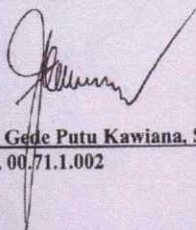 Gede Putu Kawiana, S
. 00.71.1.002